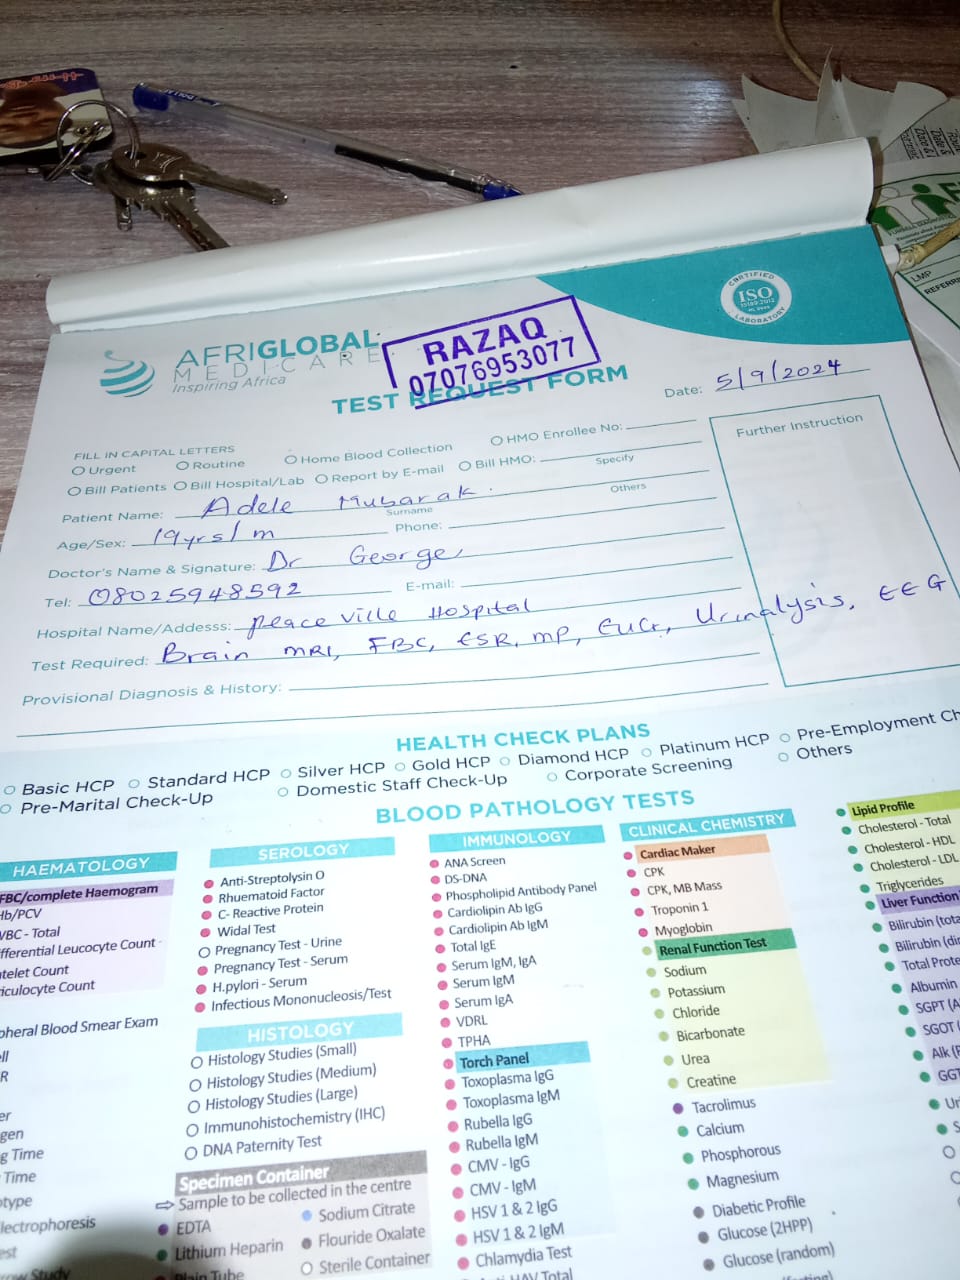 AFRIGLOBAL
MEDICARE
Inspiring Africa
RAZAQ
07076953077
TEST REQUEST FORM
CERTIFIED
ISO
LABORATORY
Date: 5/9/2024
FILL IN CAPITAL LETTERS
Urgent
Routine
Home Blood Collection
HMO Enrollee No:
Bill Patients
Bill Hospital/Lab
Report by E-mail
Bill HMO:
Specify
Further Instruction
Patient Name: Adele Mubarak.
Surname
Others
Age/Sex: 19yrs/m
Phone:
Doctor's Name & Signature: Dr George
Tel: 08025948592
E-mail:
Hospital Name/Addesss: peace ville Hospital
Test Required: Brain MRI, FBC, ESR, MP, EUCr, Urinalysis, EEG
Provisional Diagnosis & History:
LMP
HEALTH CHECK PLANS
Basic HCP
Standard HCP
Silver HCP
Gold HCP
Diamond HCP
Platinum HCP
Pre-Employment Ch
Pre-Marital Check-Up
Domestic Staff Check-Up
Corporate Screening
Others
BLOOD PATHOLOGY TESTS
HAEMATOLOGY
FBC/complete Haemogram
Hb/PCV
WBC - Total
ifferential Leucocyte Count
telet Count
iculocyte Count
pheral Blood Smear Exam
ell
R
er
gen
g Time
Time
otype
lectrophoresis
est
row Study
SEROLOGY
Anti-Streptolysin O
Rhuematoid Factor
C- Reactive Protein
Widal Test
Pregnancy Test - Urine
Pregnancy Test - Serum
H.pylori - Serum
Infectious Mononucleosis/Test
HISTOLOGY
Histology Studies (Small)
Histology Studies (Medium)
Histology Studies (Large)
Immunohistochemistry (IHC)
DNA Paternity Test
Specimen Container
Sample to be collected in the centre
EDTA
Sodium Citrate
Lithium Heparin
Flouride Oxalate
Plain Tube
Sterile Container
IMMUNOLOGY
ANA Screen
DS-DNA
Phospholipid Antibody Panel
Cardiolipin Ab IgG
Cardiolipin Ab IgM
Total IgE
Serum IgM, IgA
Serum IgM
Serum IgA
VDRL
TPHA
Torch Panel
Toxoplasma IgG
Toxoplasma IgM
Rubella IgG
Rubella IgM
CMV - IgG
CMV - IgM
HSV 1 & 2 IgG
HSV 1 & 2 IgM
Chlamydia Test
Anti-HAV Total
CLINICAL CHEMISTRY
Cardiac Maker
CPK
CPK, MB Mass
Troponin 1
Myoglobin
Renal Function Test
Sodium
Potassium
Chloride
Bicarbonate
Urea
Creatine
Tacrolimus
Calcium
Phosphorous
Magnesium
Diabetic Profile
Glucose (2HPP)
Glucose (random)
Lipid Profile
Cholesterol - Total
Cholesterol - HDL
Cholesterol - LDL
Triglycerides
Liver Function
Bilirubin (tota
Bilirubin (dir
Total Prote
Albumin
SGPT (A
SGOT (
Alk (P
GGT
Uri